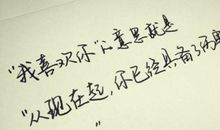 "我喜欢你"的意思就是
"从现在起,你已经具备了伤